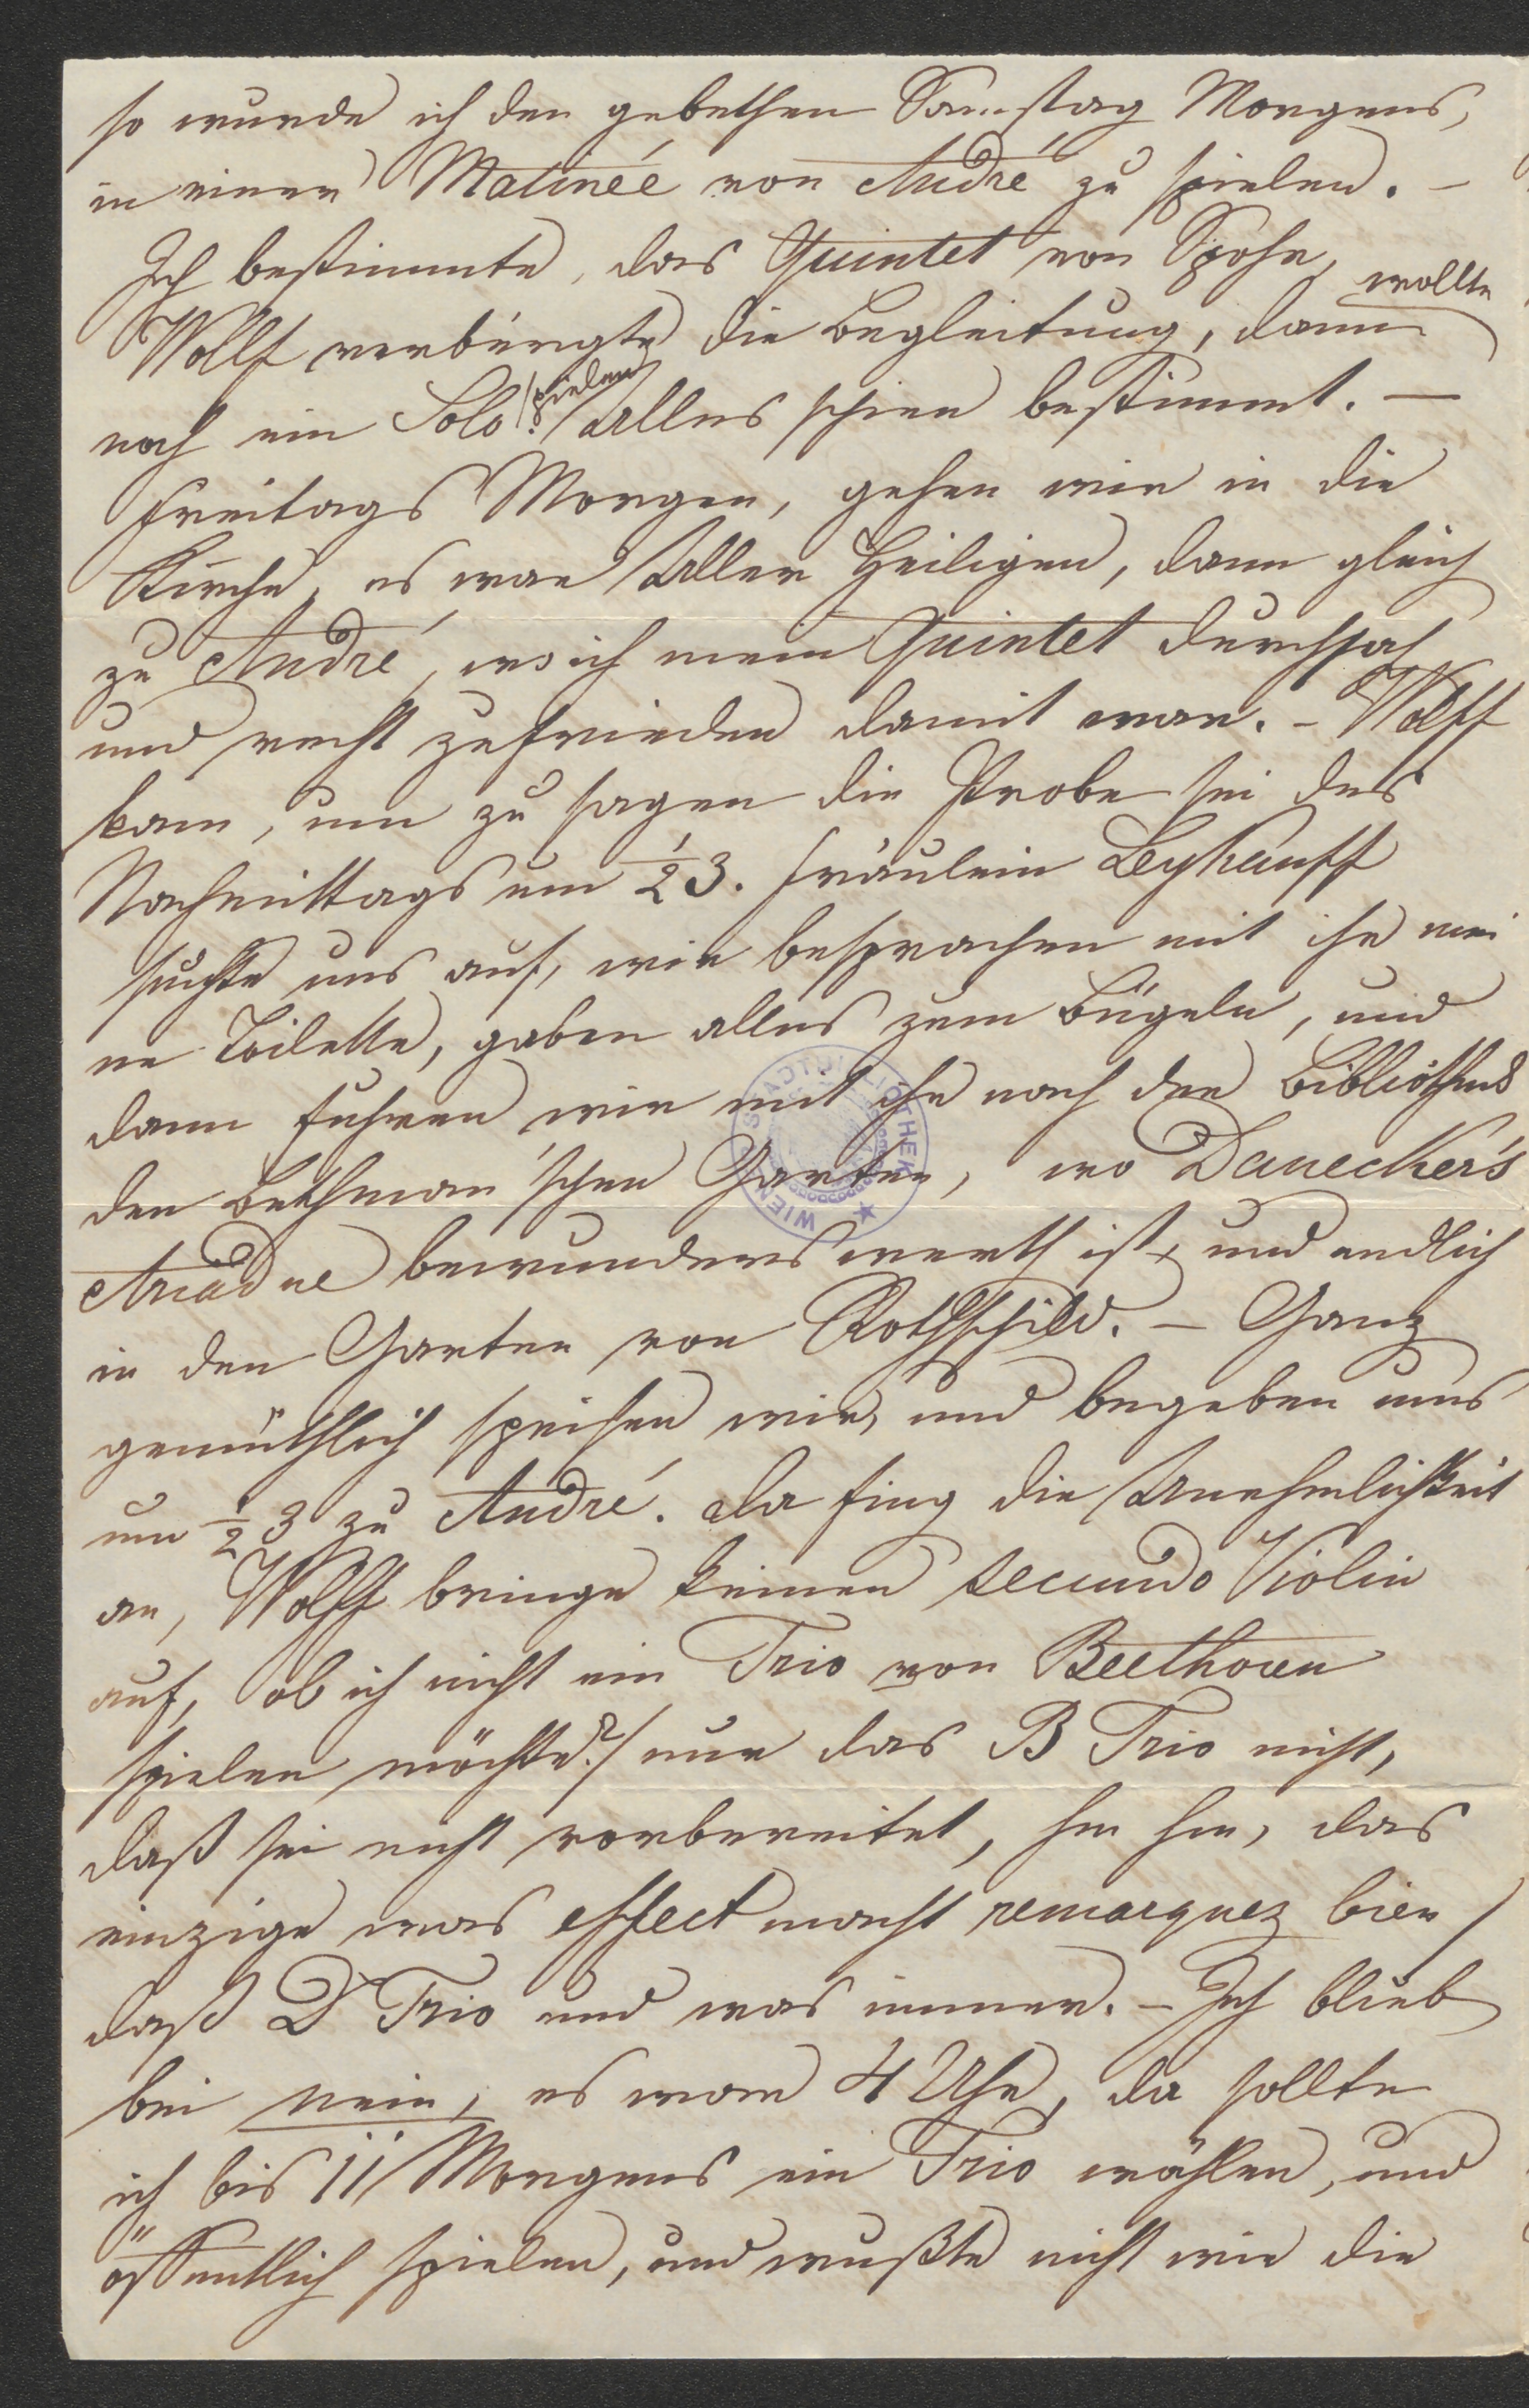 so wurde ich den gebethen Samstag Morgens,
in einer Matinée von André zu spielen. –
Ich bestimmte, das Quintet von Spohr, wollte
Wolff verbürgte die Begleitung, dann
noch ein Solo spielen. Alles schien bestimmt. –
Freitags Morgen, gehen wir in die
Kirche, es war Aller Heiligen, dann gleich
zu André, wo ich mein Quintet durchsah
und recht zufrieden damit war. – Wolff
kam, um zu sagen die Probe sei des
Nachmittags um ½3. Fräulein Leykauff
suchte uns auf, wir besprachen mit ihr mei
ne Toilette, gaben alles zum Bügeln, und
dann fuhren wir mit ihr nach der Bibliothek
den Bethman'schen Garten, wo Danecker's
Ariadne bewunderswerth ist, und endlich
in den Garten von Rothschild. – Ganz
gemüthlich speisen wir, und begeben uns
um ½3 zu André. Da fing die Unehmlichkeit
an, Wolff bringe keinen secundo Violin
auf, ob ich nicht ein Trio von Beethoven
spielen möchte? / nur das B Trio nicht,
daß sei nicht vorbereitet, hm hm, das
einzige was effect macht remarquez bien /
daß D Trio und was immer. – Ich blieb
bei nein, es war 4 Uhr, da sollte
ich bis 11 Morgens ein Trio wählen, und
öffentlich spielen, und wußte nicht wie die
STADTBIBLIOTHEK WIEN